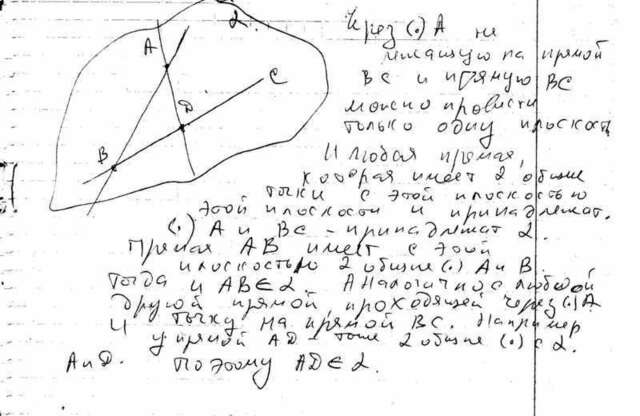 A
α.
C
D
B
Через (.) A не
лежащую на прямой
BC и прямую BC
можно провести
только одну плоскость
И любая прямая,
которая имеет 2 общие
точки с этой плоскостью
этой плоскости и принадлежат.
(.) A и BC - принадлежат α.
Прямая AB имеет с этой
плоскостью 2 общие (.) A и B.
Тогда и AB ∈ α. Аналогично с любой
другой прямой, проходящей через (.) A
и точку на прямой BC. Например
у прямой AD - тоже 2 общие (.) с α.
A и D. Поэтому AD ∈ α.